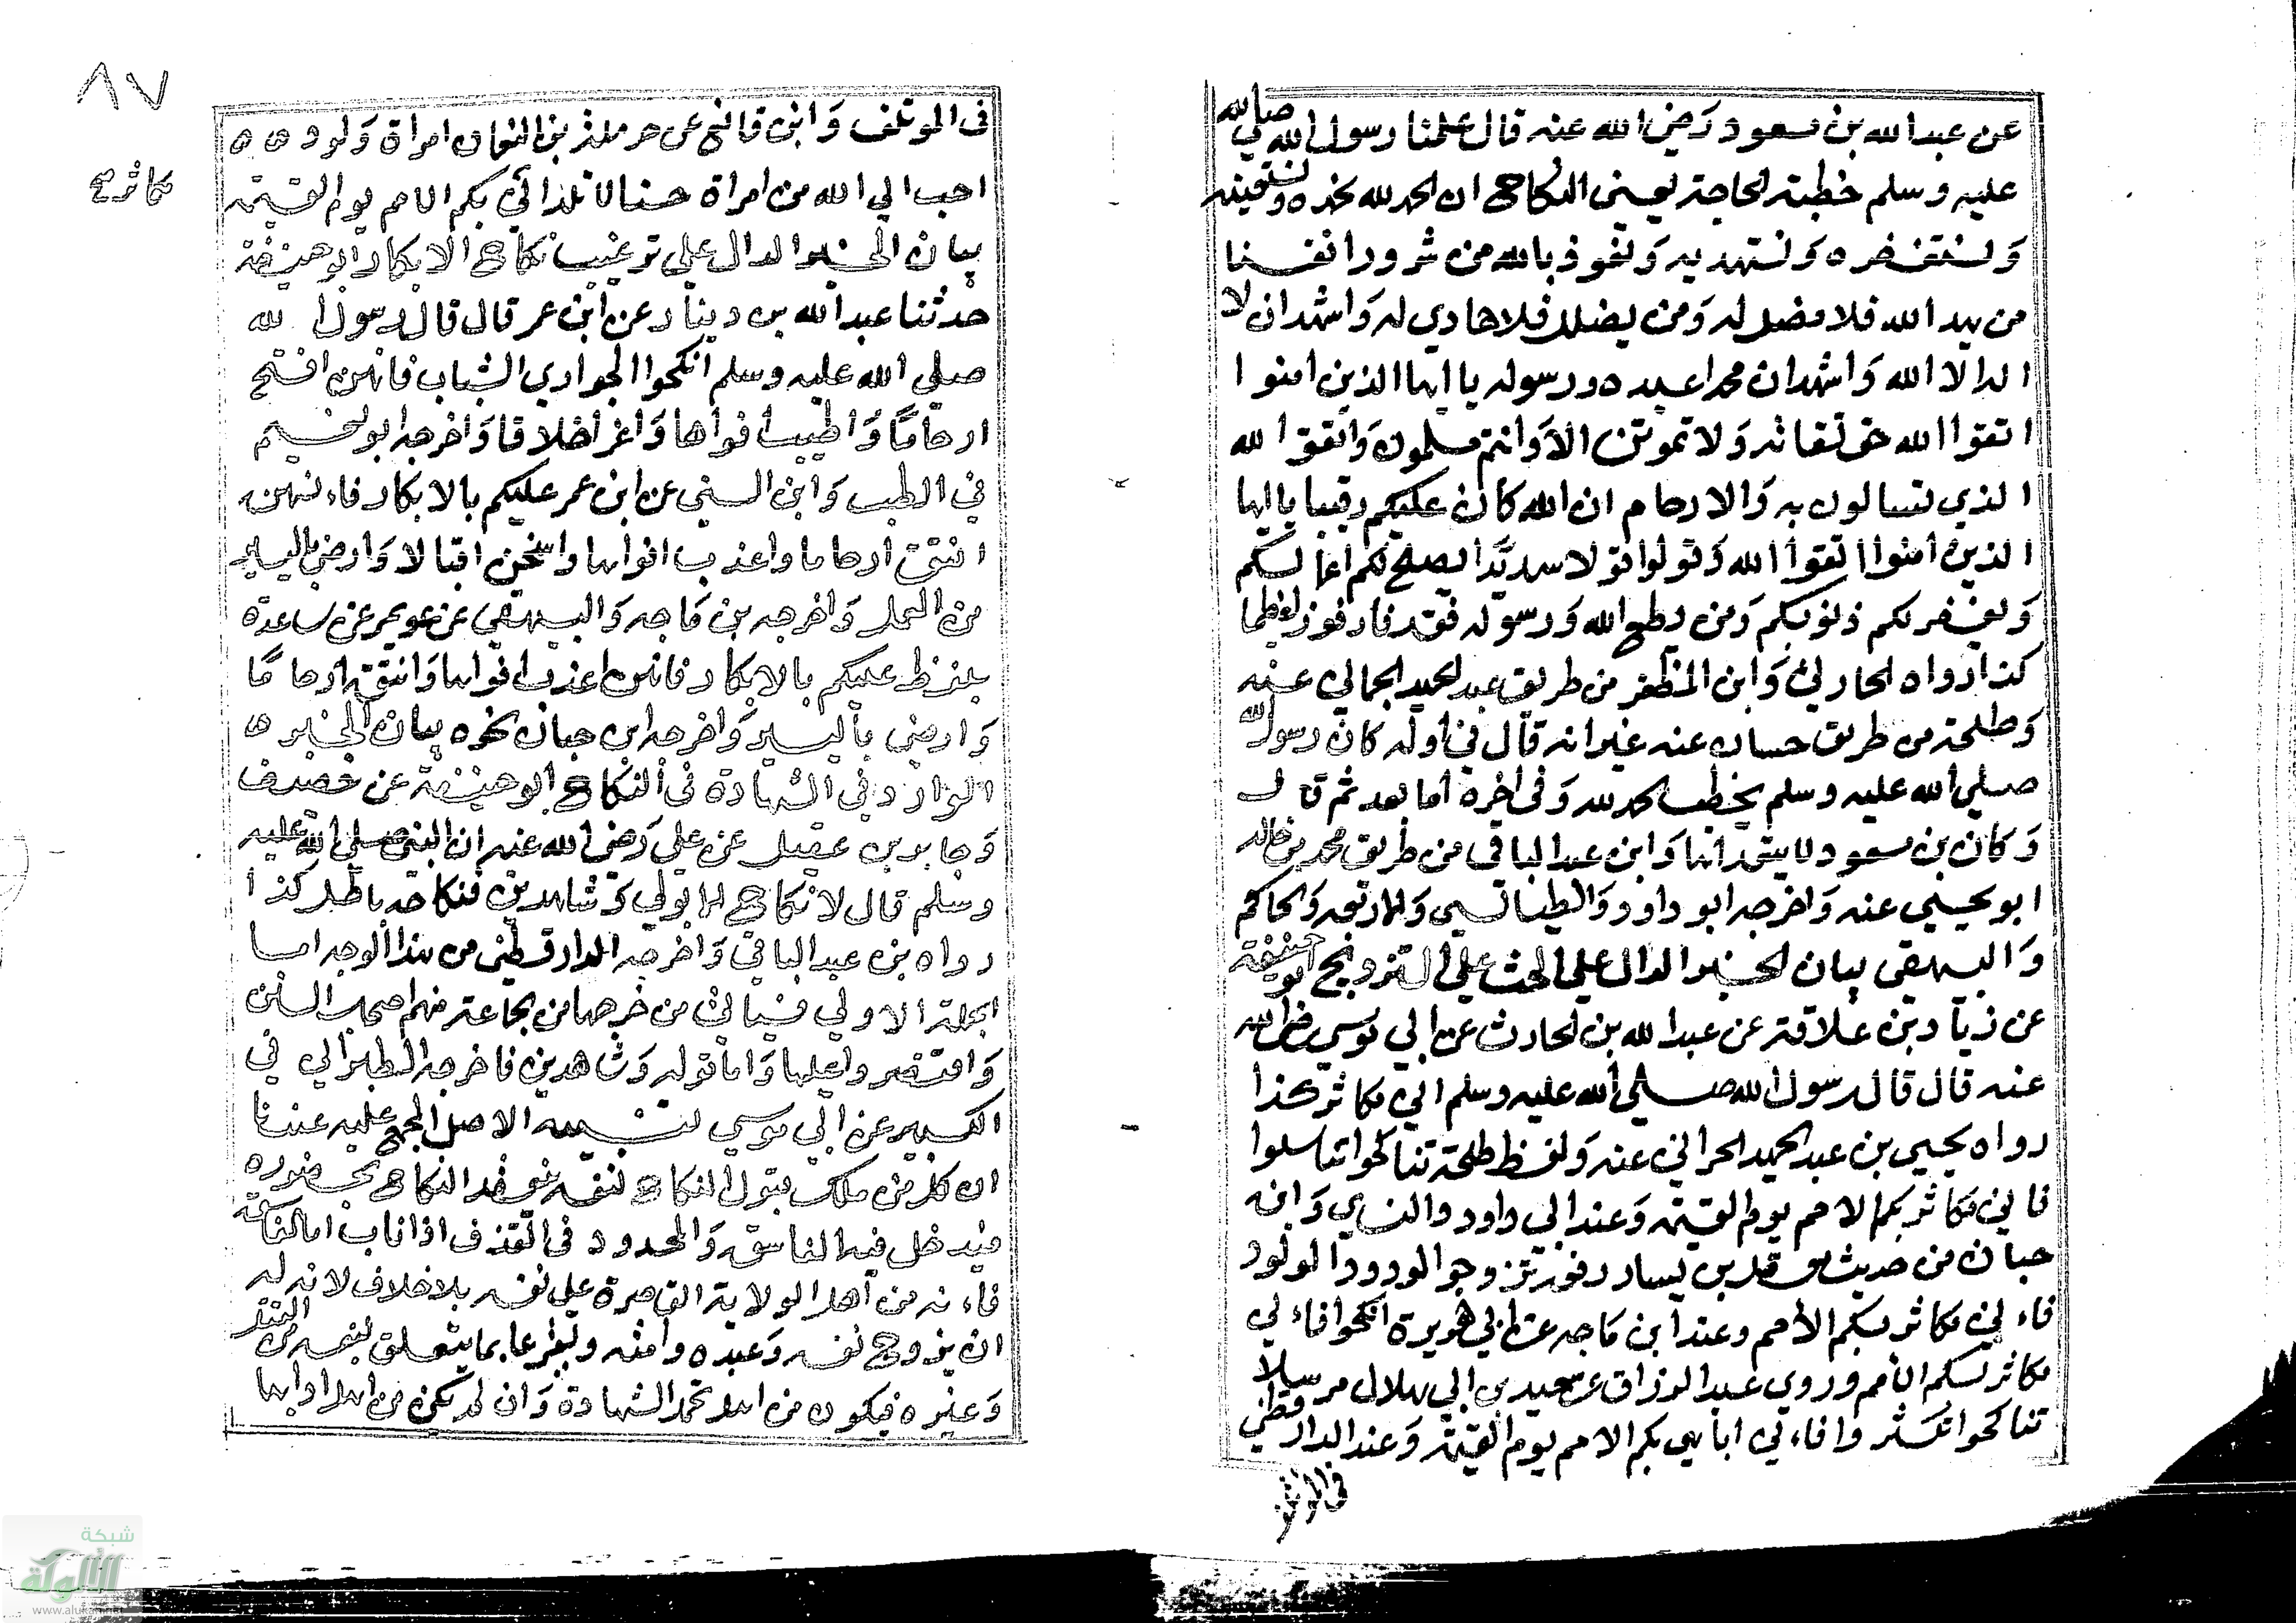 عن عبدالله بن مسعود رَضي الله عنه قال علمنا رسول الله صلى الله
عليه وسلم خطبة الحاجة يعني النكاح ان الحمد لله نحمده ونستعينه
وَنستغفره وَنستهديه وَنعوذ بالله من شرور انفسنا
من يهد الله فلا مضل له وَمن يضلل فلا هادي له وَاشهد ان لا
اله الا الله وَاشهدان محمدا عبده ورسوله يا ايها الذين امنوا
اتقوا الله حق تقاته وَلا تموتن الا وَانتم مسلمون وَاتقوا الله
الذي تسالون به وَالارحام ان الله كان عليكم رقيبا يا ايها
الذين امنوا اتقوا الله وَقولوا قولا سديدًا يصلح لكم اعمالكم
وَيغفر لكم ذنوبكم وَمن يطع الله وَرسوله فقد فاز فوزا عظيما
كذا رواه الحارثي وَابن المظفر من طريق عبد الحميد الحماني عنه
وَطلحة من طريق حسان عنه غير انه قال في اوله كان رسول الله
صلي الله عليه وسلم يخطب الحمد لله وَفي اخره اما بعد ثم قال
وَكان بن مسعود لا يبتدانا وَابن عبد الباقي من طريق محمد بن خالد
ابو يحيي عنه وَاخرجه ابو داود وَالطيالسي وَالاربعه وَالحاكم
وَالبيهقي بيان الخبر الدال علي الحث علي التزويج ابو حنيفة
عن زياد بن علاقة عن عبد الله بن الحارث عن ابي موسي رضي الله
عنه قال قال رسول الله صلي الله عليه وسلم اني مكاثر كذا
رواه يحيي بن عبد الحميد الحراني عنه وَلفظ طلحة تناكحوا تناسلوا
فاني مكاثر بكم الامم يوم القيمة وَعند ابي داود والنساي وَابن
حبان من حديث معقل بن يسار رفعه تزوجوا الودود الولود
فاءني مكاثر بكم الأمم وعند ابن ماجه عن ابي هريرة انكحوا فاءني
مكاثر بكم الامم وروي عبد الرزاق عن سعيد بن ابي هلال مرسلا
تناكحوا تكثروا فاءني اباهي بكم الامم يوم القيمة وَعند الدارقطني
في الموتلف
٨٧
مكاثر صح
في الموتلف وَابن قانع عن حرملة بن النعمان امراة وَلود
احب الي الله من امراة حسنا لا تلد اني مكاثر بكم الامم يوم القيمة
بيان الخبر الدال علي ترغيب نكاح الابكار ابو حنيفة
حدثنا عبد الله بن دينار عن ابن عمر قال قال رسول الله
صلي الله عليه وسلم انكحوا الجواري الشباب فانهن افتح
ارحامًا وَاطيب افواها وَاغر اخلاقا وَاخرجه ابو نعيم
في الطب وَابن السني عن ابن عمر عليكم بالابكار فاءنهن
انتق ارحاما واعذب افواها واسخن اقبالا وَارضي باليسير
من العمل وَاخرجه بن مَاجه وَالبيهقي عن عويمر عن ساعدة
بلفظ عليكم بالابكار فانهن اعذب افواها وَانتق ارحامًا
وَارضي باليسير وَاخرجه ابن حبان نحوه بيان الخبر
الوارد في الشهادة في النكاح ابو حنيفة عن خصيف
وَجابر بن عقيل عن علي رَضي الله عنه ان النبي صلي الله عليه
وسلم قال لا نكاح الا بولي وَشاهدين فنكاحه باطل كذا
رواه بن عبد الباقي وَاخرجه الدارقطني من هذا الوجه اما
الجملة الاولي فسياتي من خرجها من جماعة منهم اصحاب السنن
وَاقتصروا عليها وَاما قوله وَشاهدين فاخرجه الطبراني في
الكبير عن ابي موسي تنبيه الاصل المجمع عليه عندنا
ان كل من ملك قبول النكاح لنفسه ينعقد النكاح بحضوره
فيدخل فيه الفاسق وَالمحدود في القذف اذا تاب اما الفاسق
فاءنه من اهل الولاية القاصرة علي نفسه بلا خلاف لانه له
ان يزوج نفسه وَعبده وامته ويقر بما يتعلق بنفسه من القتل
وَغيره فيكون من اهل تحمل الشهادة وَان لم يكن من اهل ادايها